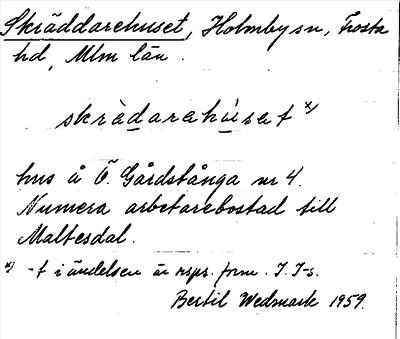 Skräddarehuset, Holmby sn, Frosta
hd, Mlm län.
skrädarehúsetx)
hus å Ö. Gårdstånga nr 4.
Numera arbetarebostad till
Maltesdal.
x) -t i ändelsen är rspr. form. I. I-s.
Bertil Wedmark 1959.